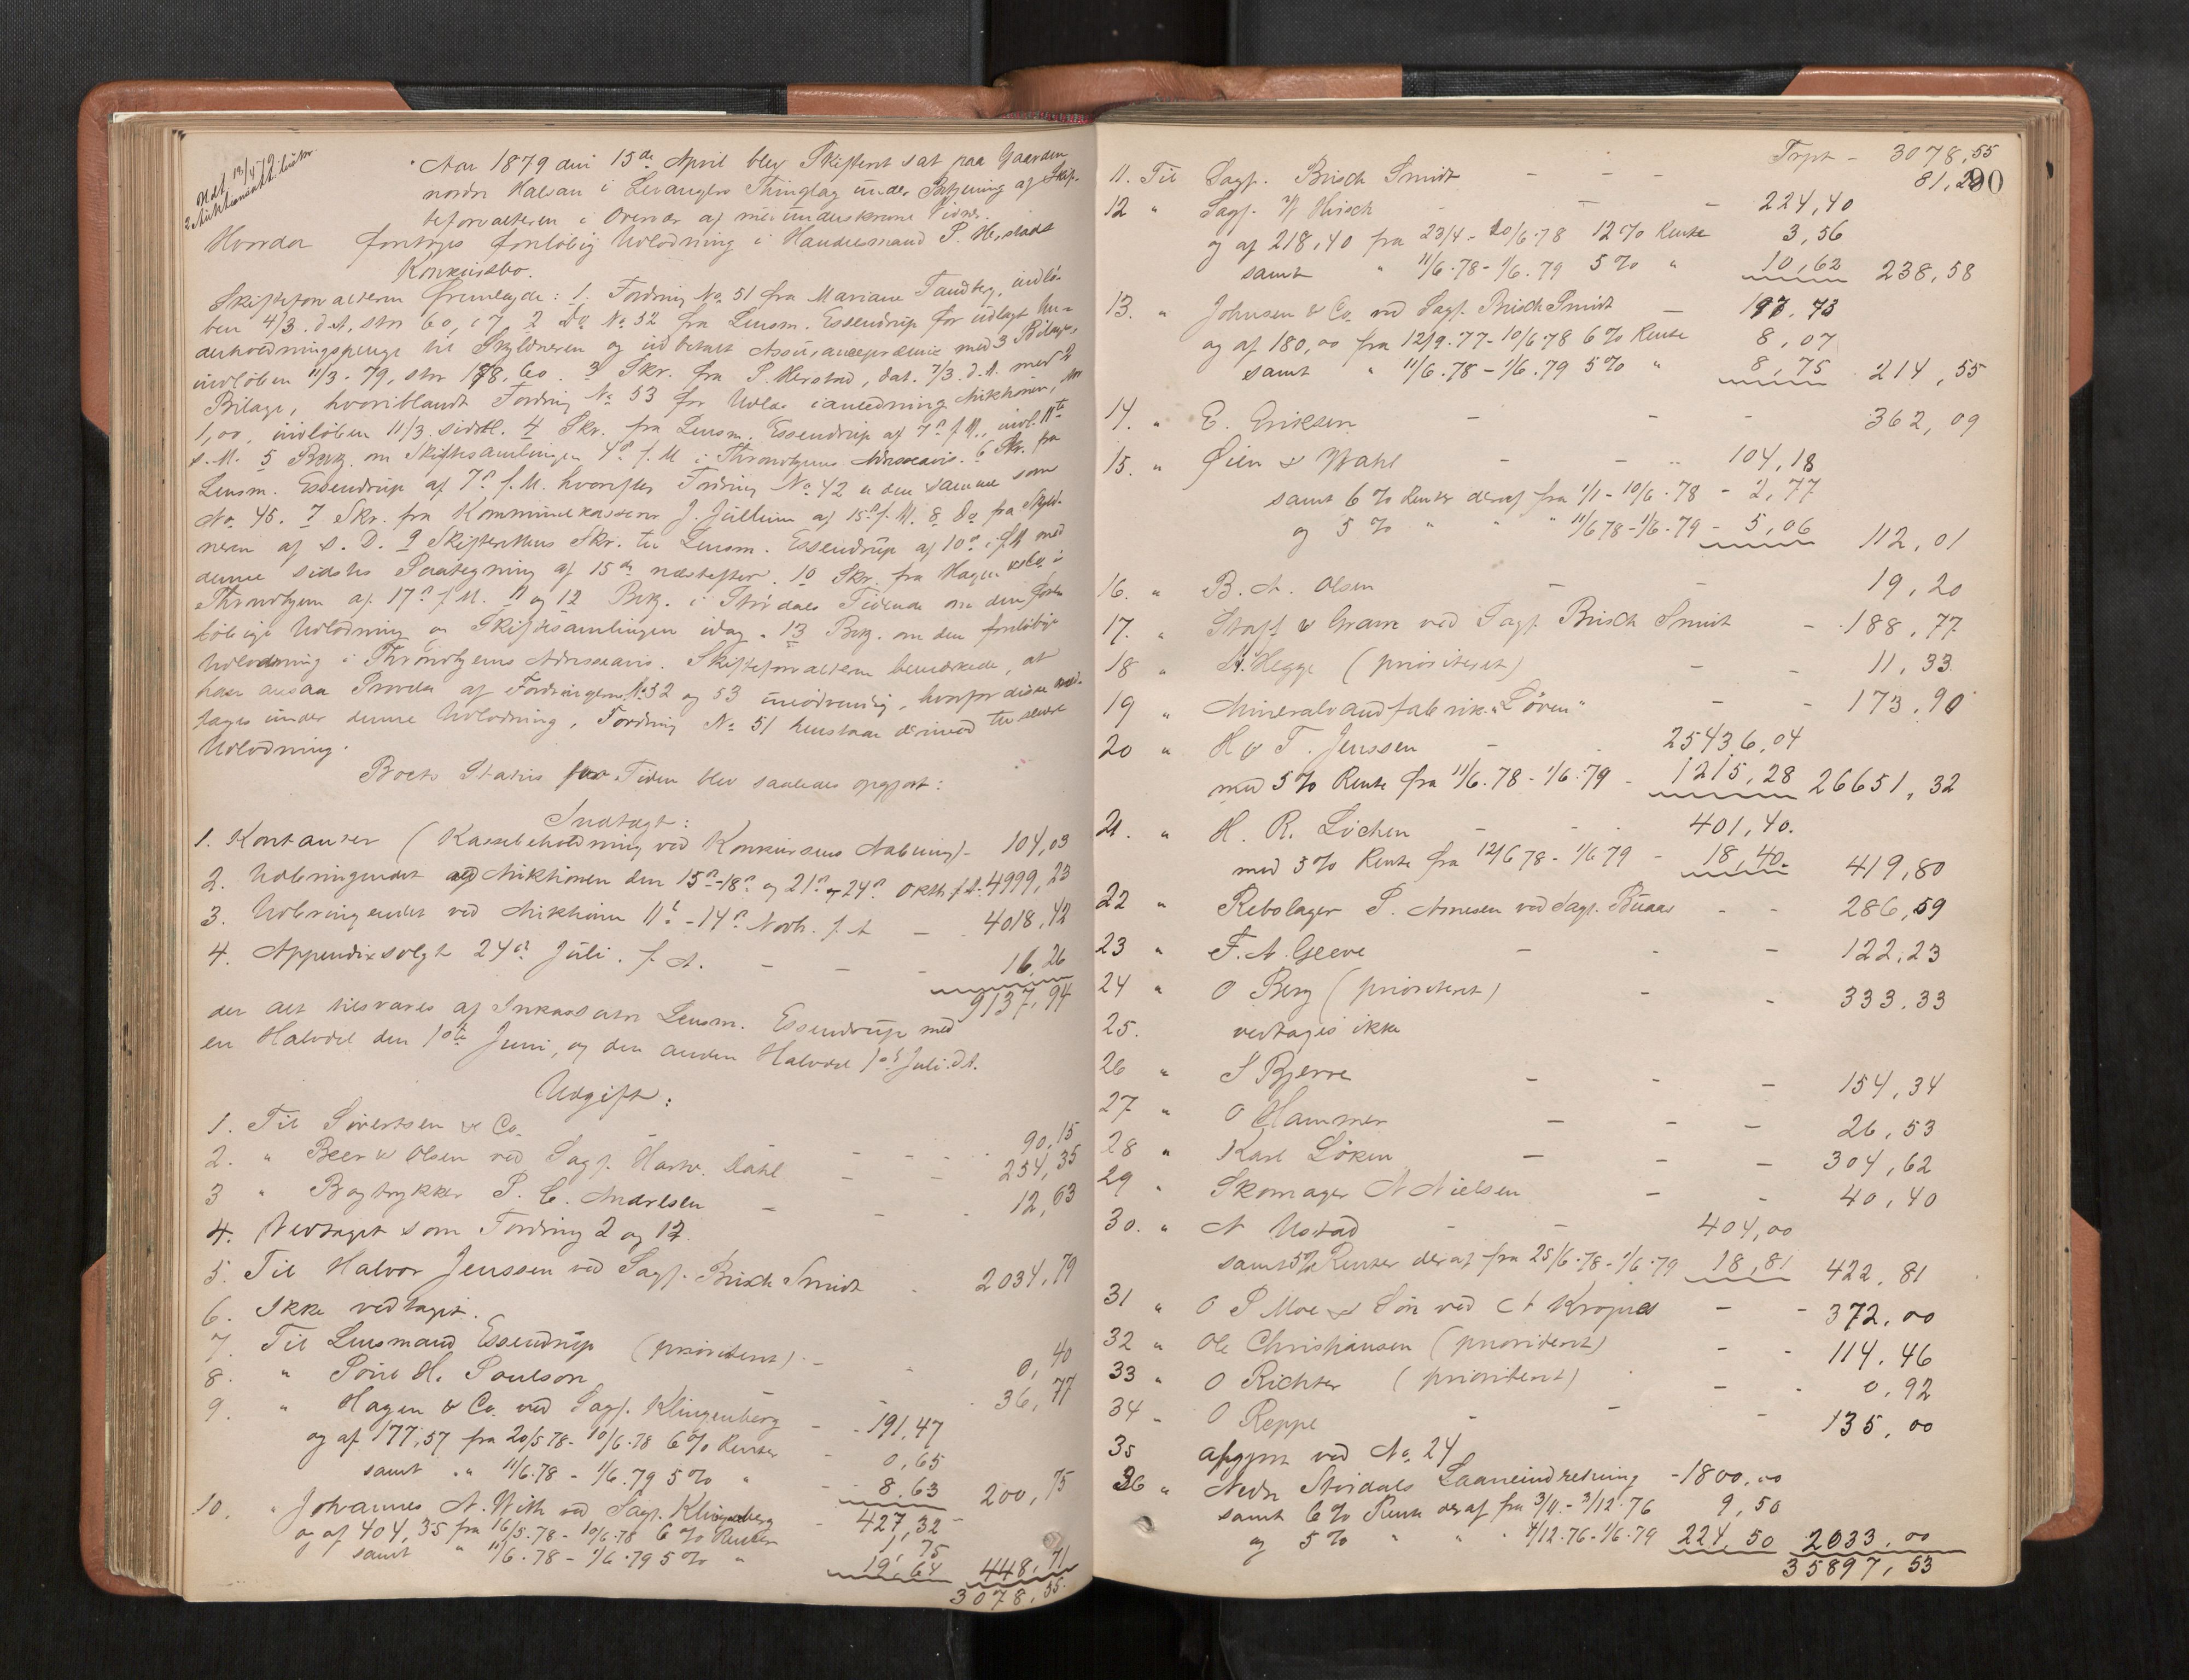 Udt. 13/4 79
2 Auktionsaktbistr.
Aar 1879 den 15de April blev Skifteret sat paa Gaarden
nordre Halsan i Levangers Thinglag under Betjening af Skif-
teforvalteren i Overvær af medunderskrevne Vidner.
Hvorda foretoges foreløbig Udlodning i Handelsmand P. Herstads
Konkursbo.
Skifteforvalteren fremlagde: 1. Fordring No 51 fra Mariane Tandberg, indlø-
ben 4/3. d.A. stor 60,17 2 Do No 52 fra Lensm. Essendrup for udlagt Un-
derholdningspenge til Skyldneren og udbetalt Assurancepræmie med 3 Bilage,
indløben 11/3. 79, stor 188,60. 3 Skr. fra P. Herstad, dat. 7/3. d.A. med 2
Bilage, hvoriblandt Fordring No 53 for Udlæg i anledning Auktionen, stor
1,00, indløben 11/3. sidstl. 4 Skr. fra Lensm. Essendrup af 7de f.M., indl. 11te
s.M. 5 Bekj. om Skiftesamlingen 4de f.M i Throndhjems Adresseavis. 6 Skr. fra
Lensm. Essendrup af 7de f.M. hvorefter Fordring No 42 er den samme som
No. 45. 7 Skr. fra Kommunekasserer J. Jullum af 15de f.M. 8 Do fra Skyld-
neren af s. D. 9 Skifterettens Skr. til Lensm. Essendrup af 10de f.M med
dennes sidstes Paategning af 15de næstefter. 10 Skr. fra Hagen & Co i
Throndhjem af 17de f.M. 11 og 12 Bekj. i Stjørdalens Tidende om den fore-
løbige Udlodning og Skiftesamlingen idag. 13 Bekj. om den foreløbige
Udlodning i Throndhjems Adresseavis. Skifteforvalteren bemærkede, at
han ansaa Prøvelse af Fordringerne No 52 og 53 unødvendig, hvorfor disse med-
tages under denne Udlodning, Fordring No 51 henstaar derimod til senere
Udlodning.
Boets Status for Tiden blev saaledes opgjort:
Indtægt:
1. Kontanter (Kassebeholdning ved Konkursens Aabning) - 104,03
2. Udbringendet ved Auktionen den 15de-18de og 21de-24de Oktbr f.A. 4999,23
3. Udbringendet ved Auktion 11te-14de Novb. f.A - 4018,42
4. Appendix solgt 24de Juli. f.A. - - - 16,26
9137,94
der alt tilsvares af Inkassator Lensm. Essendrup med
en Halvdel den 1ste Juni, og den anden Halvdel 1ste Juli. d.A.
Udgift:
1. Til Sivertsen & Co. - - - - 90,15
2. " Beer & Olsen ved Sagf. Hartv. Dahl - - 254,35
3 " Bogtrykker P. C. Andresen - - - 12,63
4. Vedtaget som Fordring 2 og 12.
5. Til Halvor Jenssen ved Sagf. Brisch Smidt - 2034,79
6. Ikke vedtaget.
7. Til Lensmand Essendrup (prioriteret) - - 0,40
8. " Sørine H. Poulson - - 36,77
9. " Hagen & Co. ved Sagf. Klingenberg - 191,47
og af 177,57 fra 20/5 78 - 10/6.78 6% Renter - 0,65
samt " 11/6.78 - 1/6.79 5% " - 8.63 200,75
10. " Johannes N. With ved Sagf. Klingenberg - 427,32
og af 404,35 fra 16/5.78 - 10/6.78 6% Renter 1,75
samt " 11/6.78 - 1/6.79 5% " 19,64 448,71
3078,55.
Trpt - 3078,55
90
11. Til Sagf. Brisch Smidt - - - 81,20
12 " Sagf. W Hirsch - - 224,40
og af 218,40 fra 23/4 - 10/6.78 12% Rente 3,56
samt " 11/6.78 - 1/6.79 5% " 10,62 238,58
13. " Johnsen & Co. ved Sagf. Brisch Smidt - 197.73
og af 180,00 fra 12/9.77 - 10/6 78 6% Rente 8,07
samt " 11/6.78 - 1/6.79 5% " 8,75 214,55
14. " E. Eriksen - - - 362,09
15. " Øien & Wahl - - 104,18
samt 6% Renter deraf fra 1/1 - 10/6.78 - 2,77
og 5% " " " 11/6 78 - 1/6.79 - 5,06 112,01
16. " B. A. Olsen - - 19,20
17. " Staff & Gram ved Sagf. Brisch Smidt - 188,77
18 " A. Hegge (prioriteret) - - 11,33
19 " Mineralvandfabrik "Løven" - - 173,90
20 " H & F. Jenssen - - 25436,04
med 5% Rente fra 11/6.78 - 1/6.79 - 1215,28 26651,32
21. " H. R. Lüchen - - 401,40.
med 5% Rente fra 12/6 78 - 1/6 79 - 18,40 419,80
22 " Rebslager P. Arnesen ved Sagf. Buaas - - 286,59
23 " F. A. Greve - - - 122,23
24 " O Berg (prioriteret) - - 333.33
25. vedtages ikke
26 " S Bjerve - - - 154,34
27 " O Hammer - - - 26,53
28 " Karl Løken - - - 304,62
29 " Skomager N Nielsen - - 40,40
30. " A Ustad - - 404,00
samt 5% Renter deraf fra 25/6.78 - 1/6.79 18,81 422,81
31 " O P Moe & Søn ved A Krognes - - 372,00
32 " Ole Christiansen (prioriteret) - - 114.46
33 " O Richter (prioriteret) - - 0.92
34 " O Reppe - - - 135,00
35 afgjort ved No. 24
36 " Nedre Stjørdals Laaneindretning - 1800.00
samt 6% Rente deraf fra 3/11 - 3/12.76 9,50
og 5% " " " 4/12.76 - 1/6.79 224,50 2033.00
35897,53